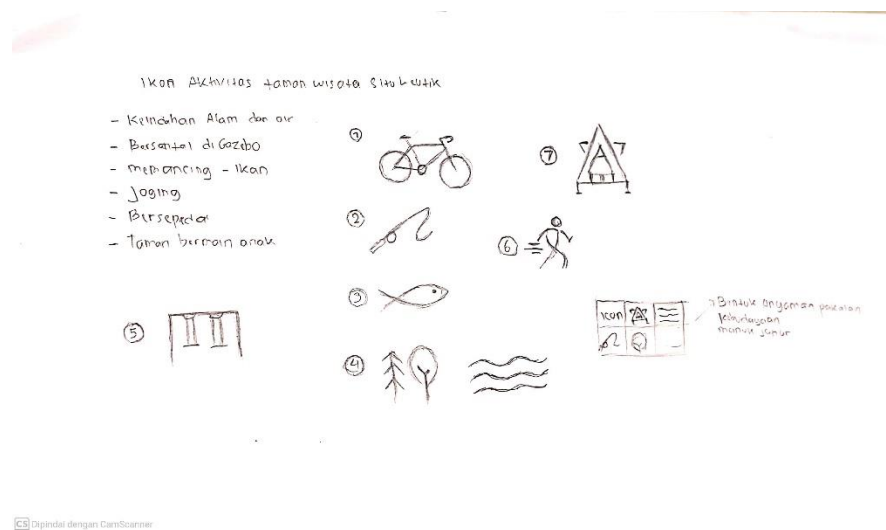 Ikon Aktivitas taman wisata Situ Leutik
- Keindahan Alam dan air
- Bersantai di Gazebo
- memancing - Ikan
- Joging
- Bersepeda
- Taman bermain anak
1
7
2
6
3
5
4
Icon
Bentuk anyaman pakaian
kebudayaan
CS Dipindai dengan CamScanner